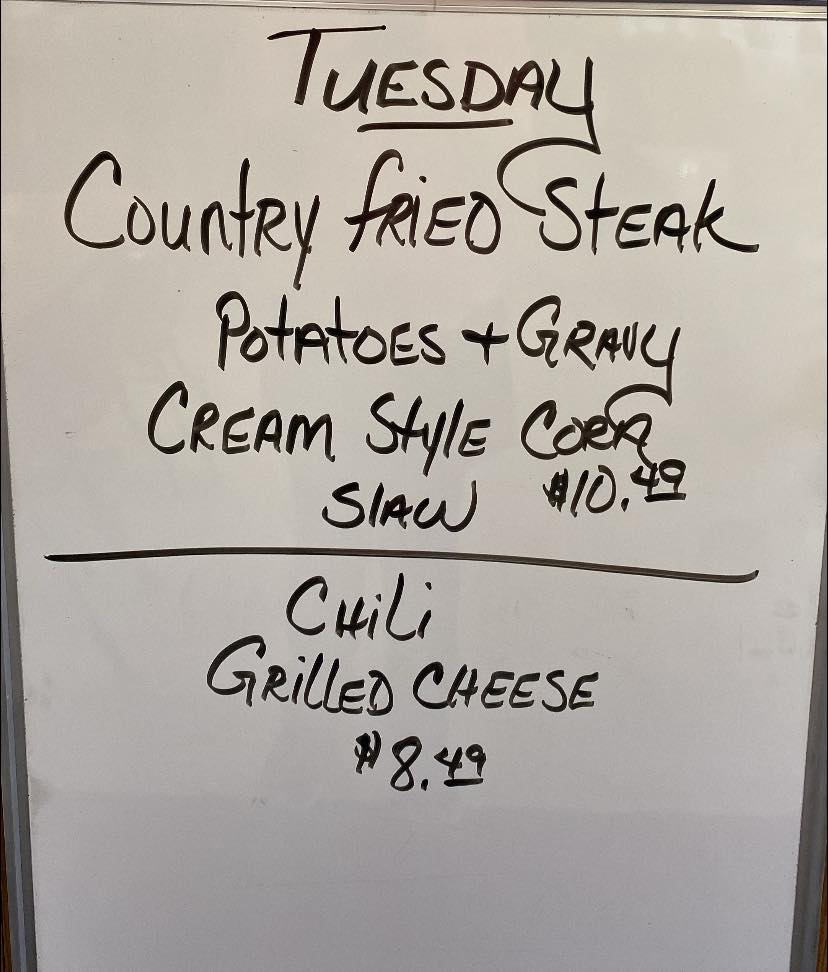 TUESDAY
COUNTRY FRIED STEAK
POTATOES + GRAVY
CREAM STYLE CORN
SLAW $10.49
CHILI
GRILLED CHEESE
$8.49